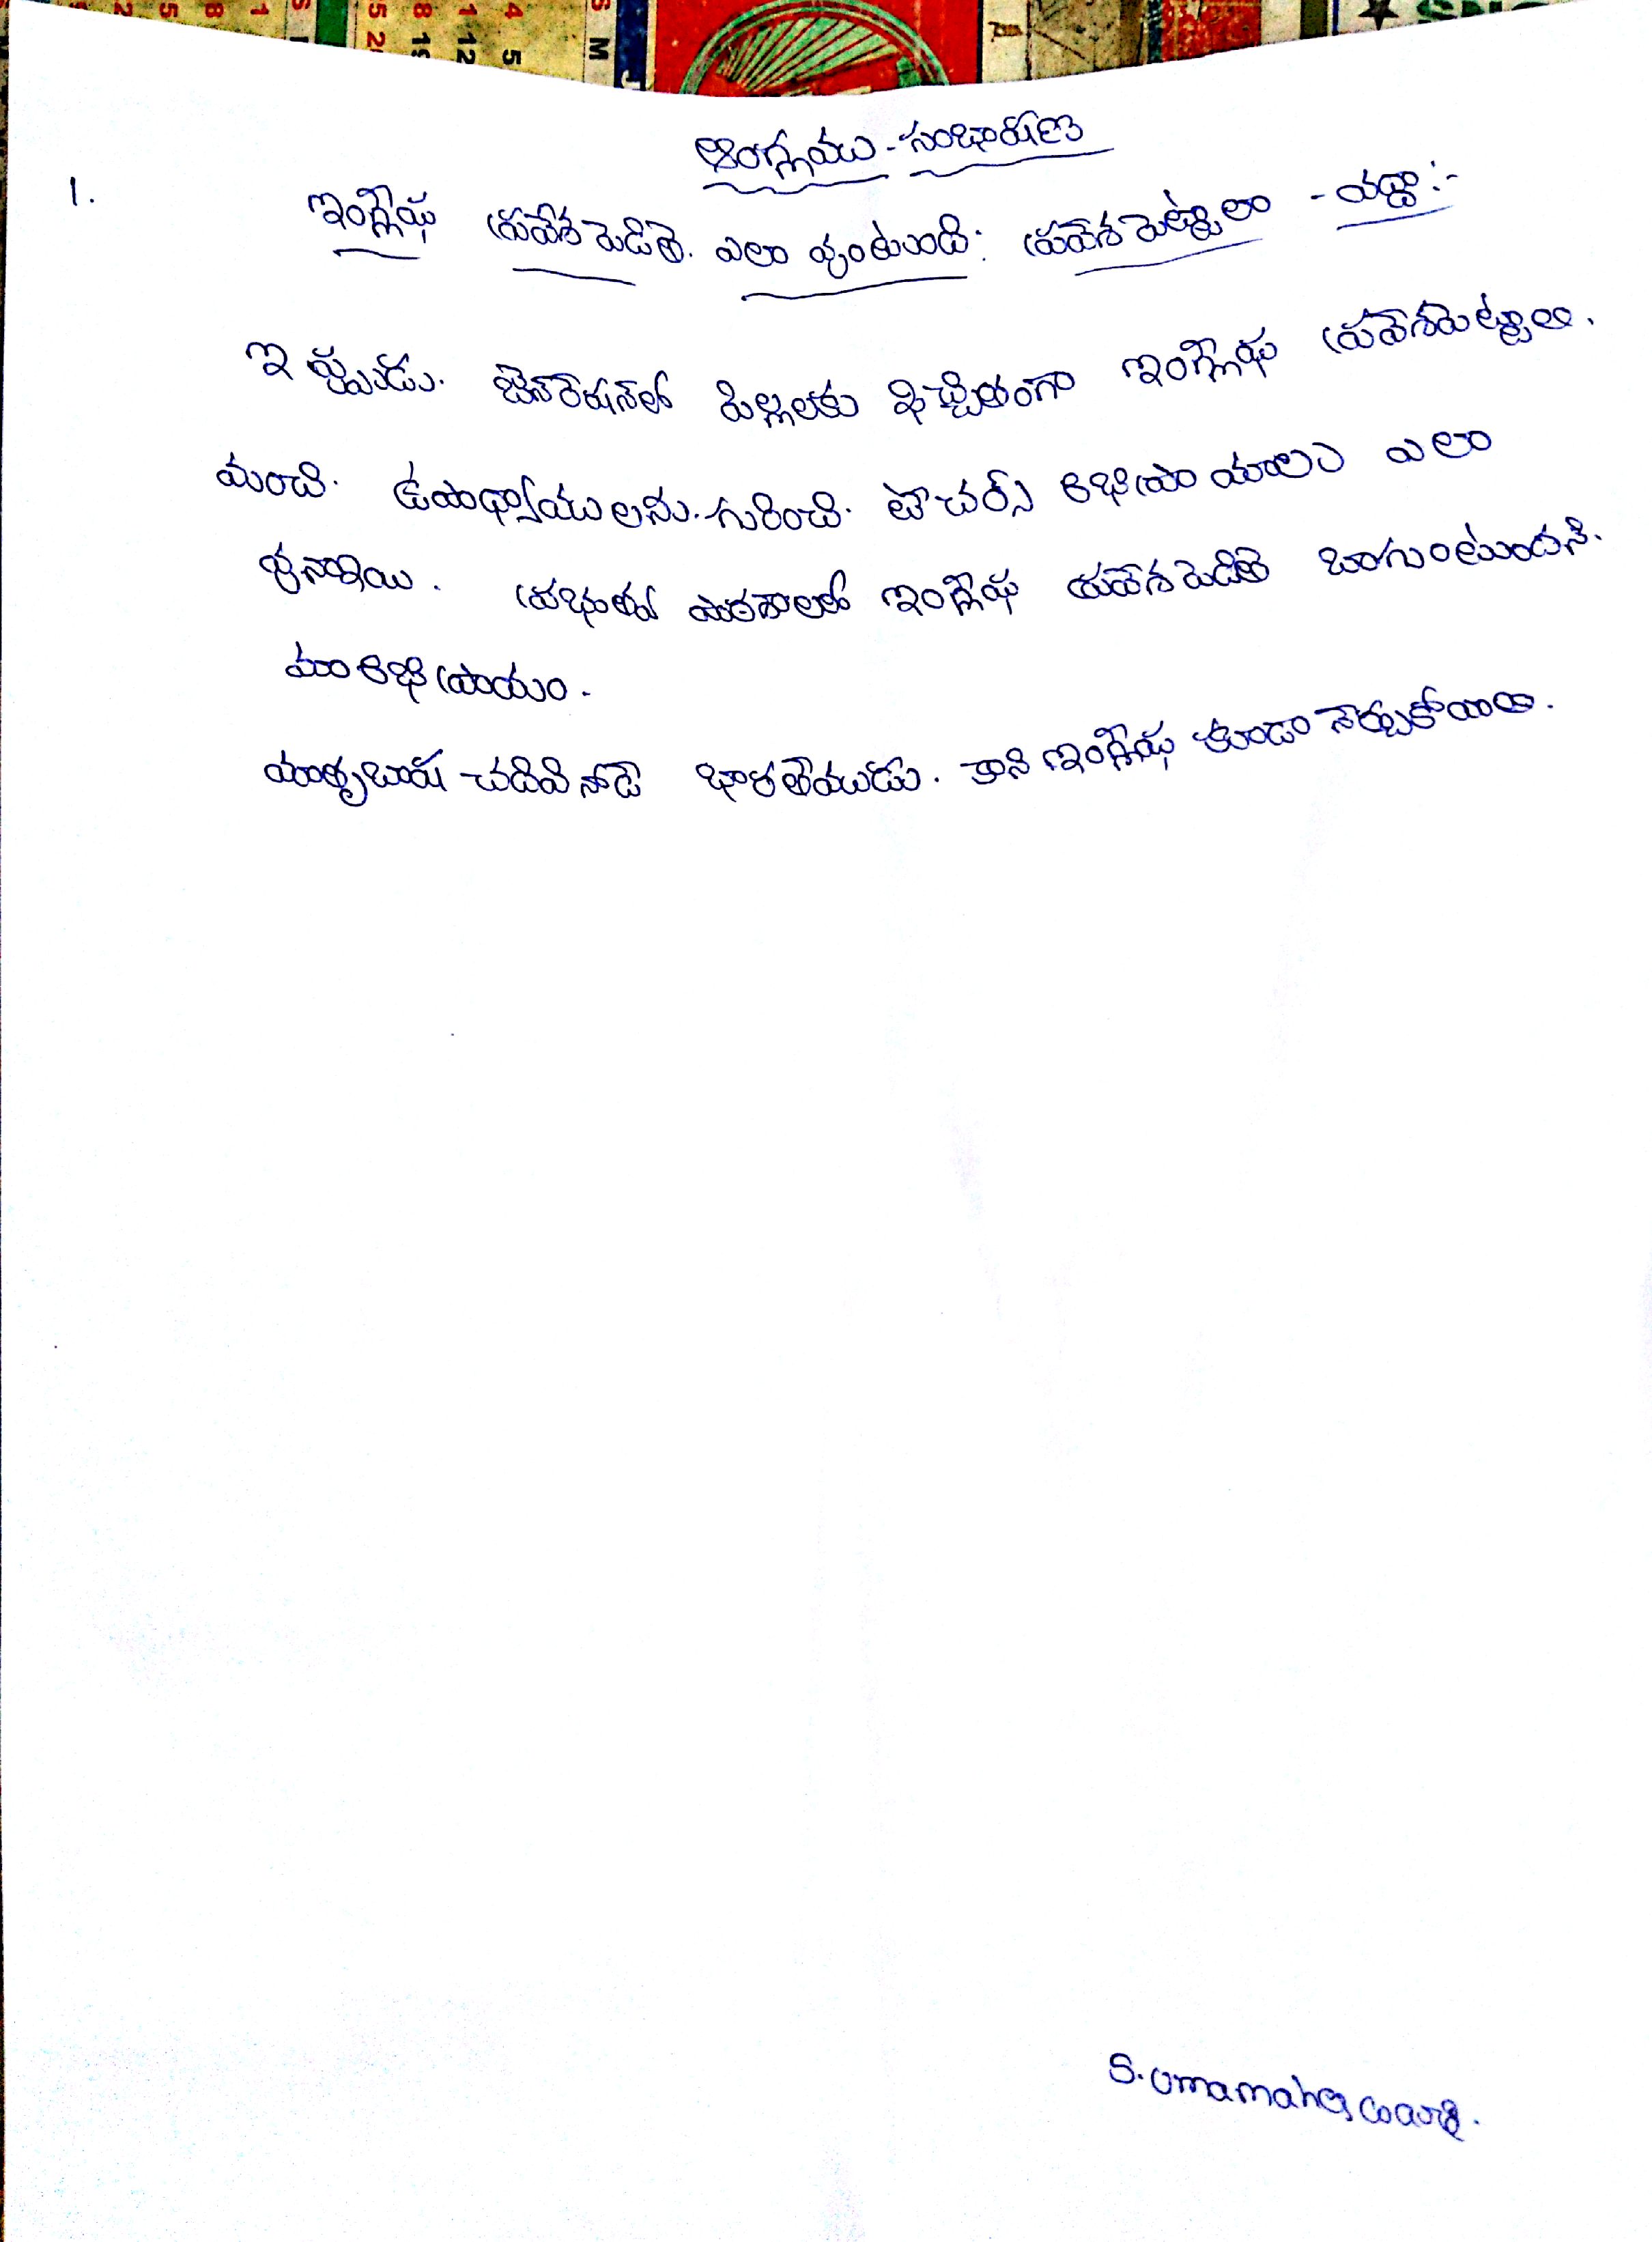 ఆంగ్లము - సంభాషణ
1. ఇంగ్లీషు ప్రవేశ పెడితె. ఎలా వుంటుంది: ప్రవేశ పెట్టాలా - వద్దా :-
ఇప్పుడు. జెనరేషన్‌లో పిల్లలకు ఖచ్చితంగా ఇంగ్లీషు ప్రవేశపెట్టాలి.
మంచి. ఉపాధ్యాయులను. గురించి. టీచర్స్ అభిప్రాయాలు ఎలా
వునాయి. ప్రభుత్వ పాఠశాలలో ఇంగ్లీషు ప్రవేశ పెడితె బాగుంటుందని.
మా అభిప్రాయం.
మాతృబాష చదివినోడె భారతీయుడు. కాని ఇంగ్లీషు కుండా నేర్చుకోవాలి.
S. Umamaheswari.